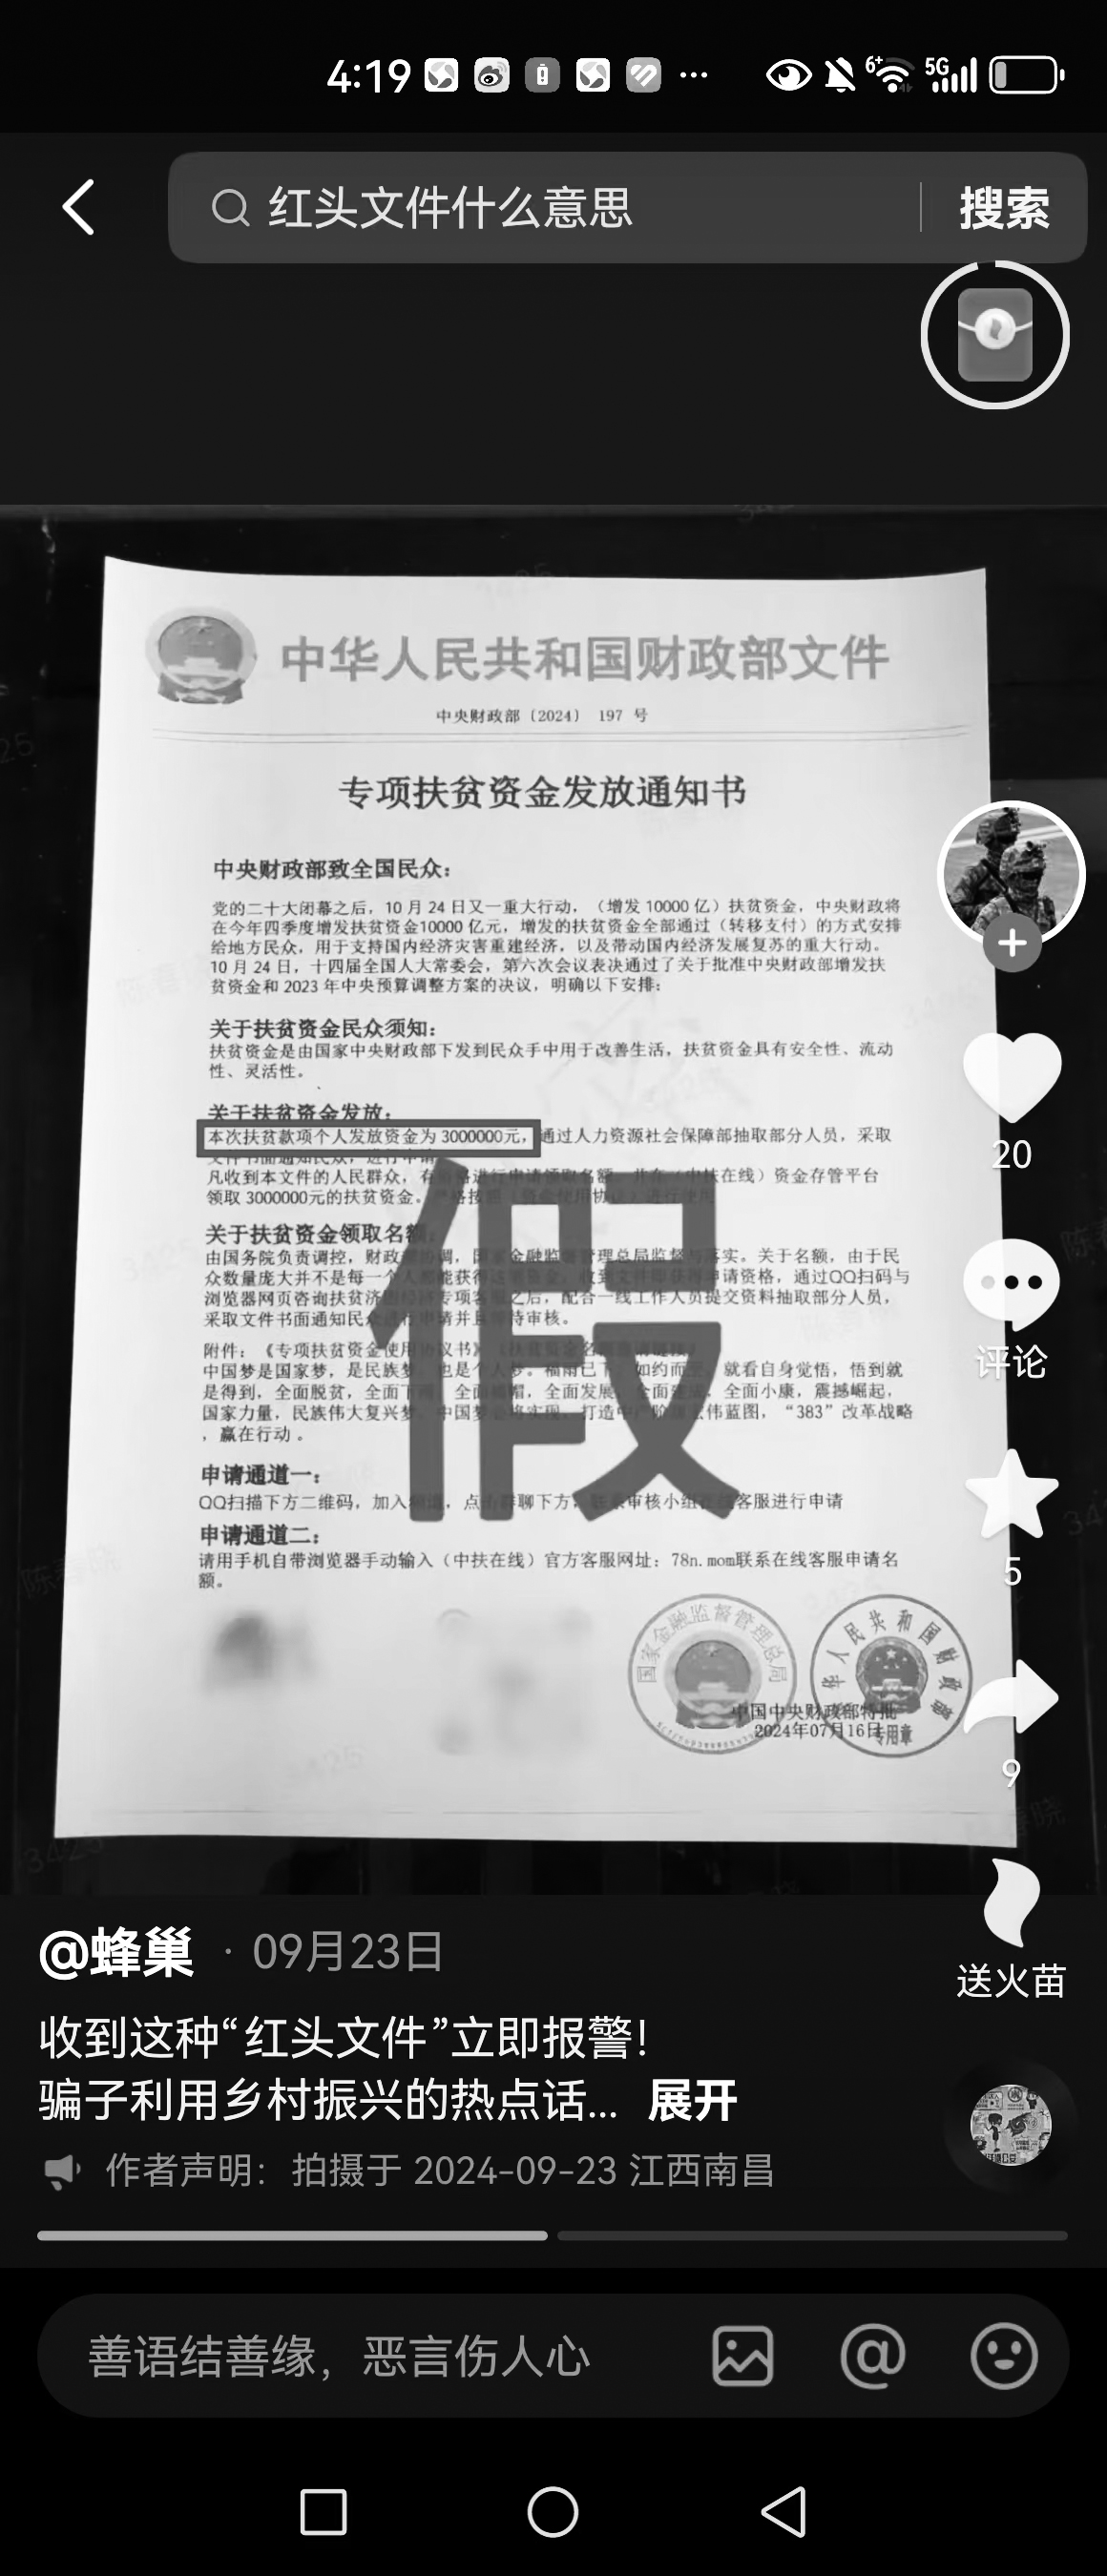 4:19
6+
5G
红头文件什么意思
搜索
中华人民共和国财政部文件
中央财政部〔2024〕 197 号
专项扶贫资金发放通知书
中央财政部致全国民众：
党的二十大闭幕之后，10 月 24 日又一重大行动，（增发 10000 亿）扶贫资金，中央财政将
在今年四季度增发扶贫资金10000 亿元，增发的扶贫资金全部通过（转移支付）的方式安排
给地方民众，用于支持国内经济灾害重建经济，以及带动国内经济发展复苏的重大行动。
10 月 24 日，十四届全国人大常委会，第六次会议表决通过了关于批准中央财政部增发扶
贫资金和 2023 年中央预算调整方案的决议，明确以下安排：
关于扶贫资金民众须知：
扶贫资金是由国家中央财政部下发到民众手中用于改善生活，扶贫资金具有安全性、流动
性、灵活性。
关于扶贫资金发放：
本次扶贫款项个人发放资金为 3000000元，通过人力资源社会保障部抽取部分人员，采取
文件书面通知民众，进行申请
凡收到本文件的人民群众，有 进行申请领取名额，并在（中扶在线）资金存管平台
领取 3000000元的扶贫资金。 使用
关于扶贫资金领取名额
由国务院负责调控，财政 调，国家金融监督管理总局监督 落实。关于名额，由于民
众数量庞大并不是每一个人都能获得 收到文件即获得申请资格，通过QQ扫码与
浏览器网页咨询扶贫济 专项客服之后，配合一线工作人员提交资料抽取部分人员，
采取文件书面通知民众进行申请并且等待审核。
附件：《专项扶贫资金使用协议书》
中国梦是国家梦，是民族梦，也是个人梦。福雨已下，如约而至，就看自身觉悟，悟到就
是得到，全面脱贫，全面 全面 帽，全面发展，全面 全面小康，震撼崛起，
国家力量，民族伟大复兴梦，中国梦必将实现，打造中产阶 伟蓝图，“383”改革战略
，赢在行动 。
申请通道一：
QQ扫描下方二维码，加入 点击群聊下方， 审核小组在线客服进行申请
申请通道二：
请用手机自带浏览器手动输入（中扶在线）官方客服网址：78n.mom联系在线客服申请名
额。
假
国家金融监督管理总局
中华人民共和国财政部
专用章
中国中央财政部特批
2024年07月16日
20
评论
5
9
送火苗
@蜂巢 · 09月23日
收到这种“红头文件”立即报警！
骗子利用乡村振兴的热点话... 展开
作者声明：拍摄于 2024-09-23 江西南昌
善语结善缘，恶言伤人心